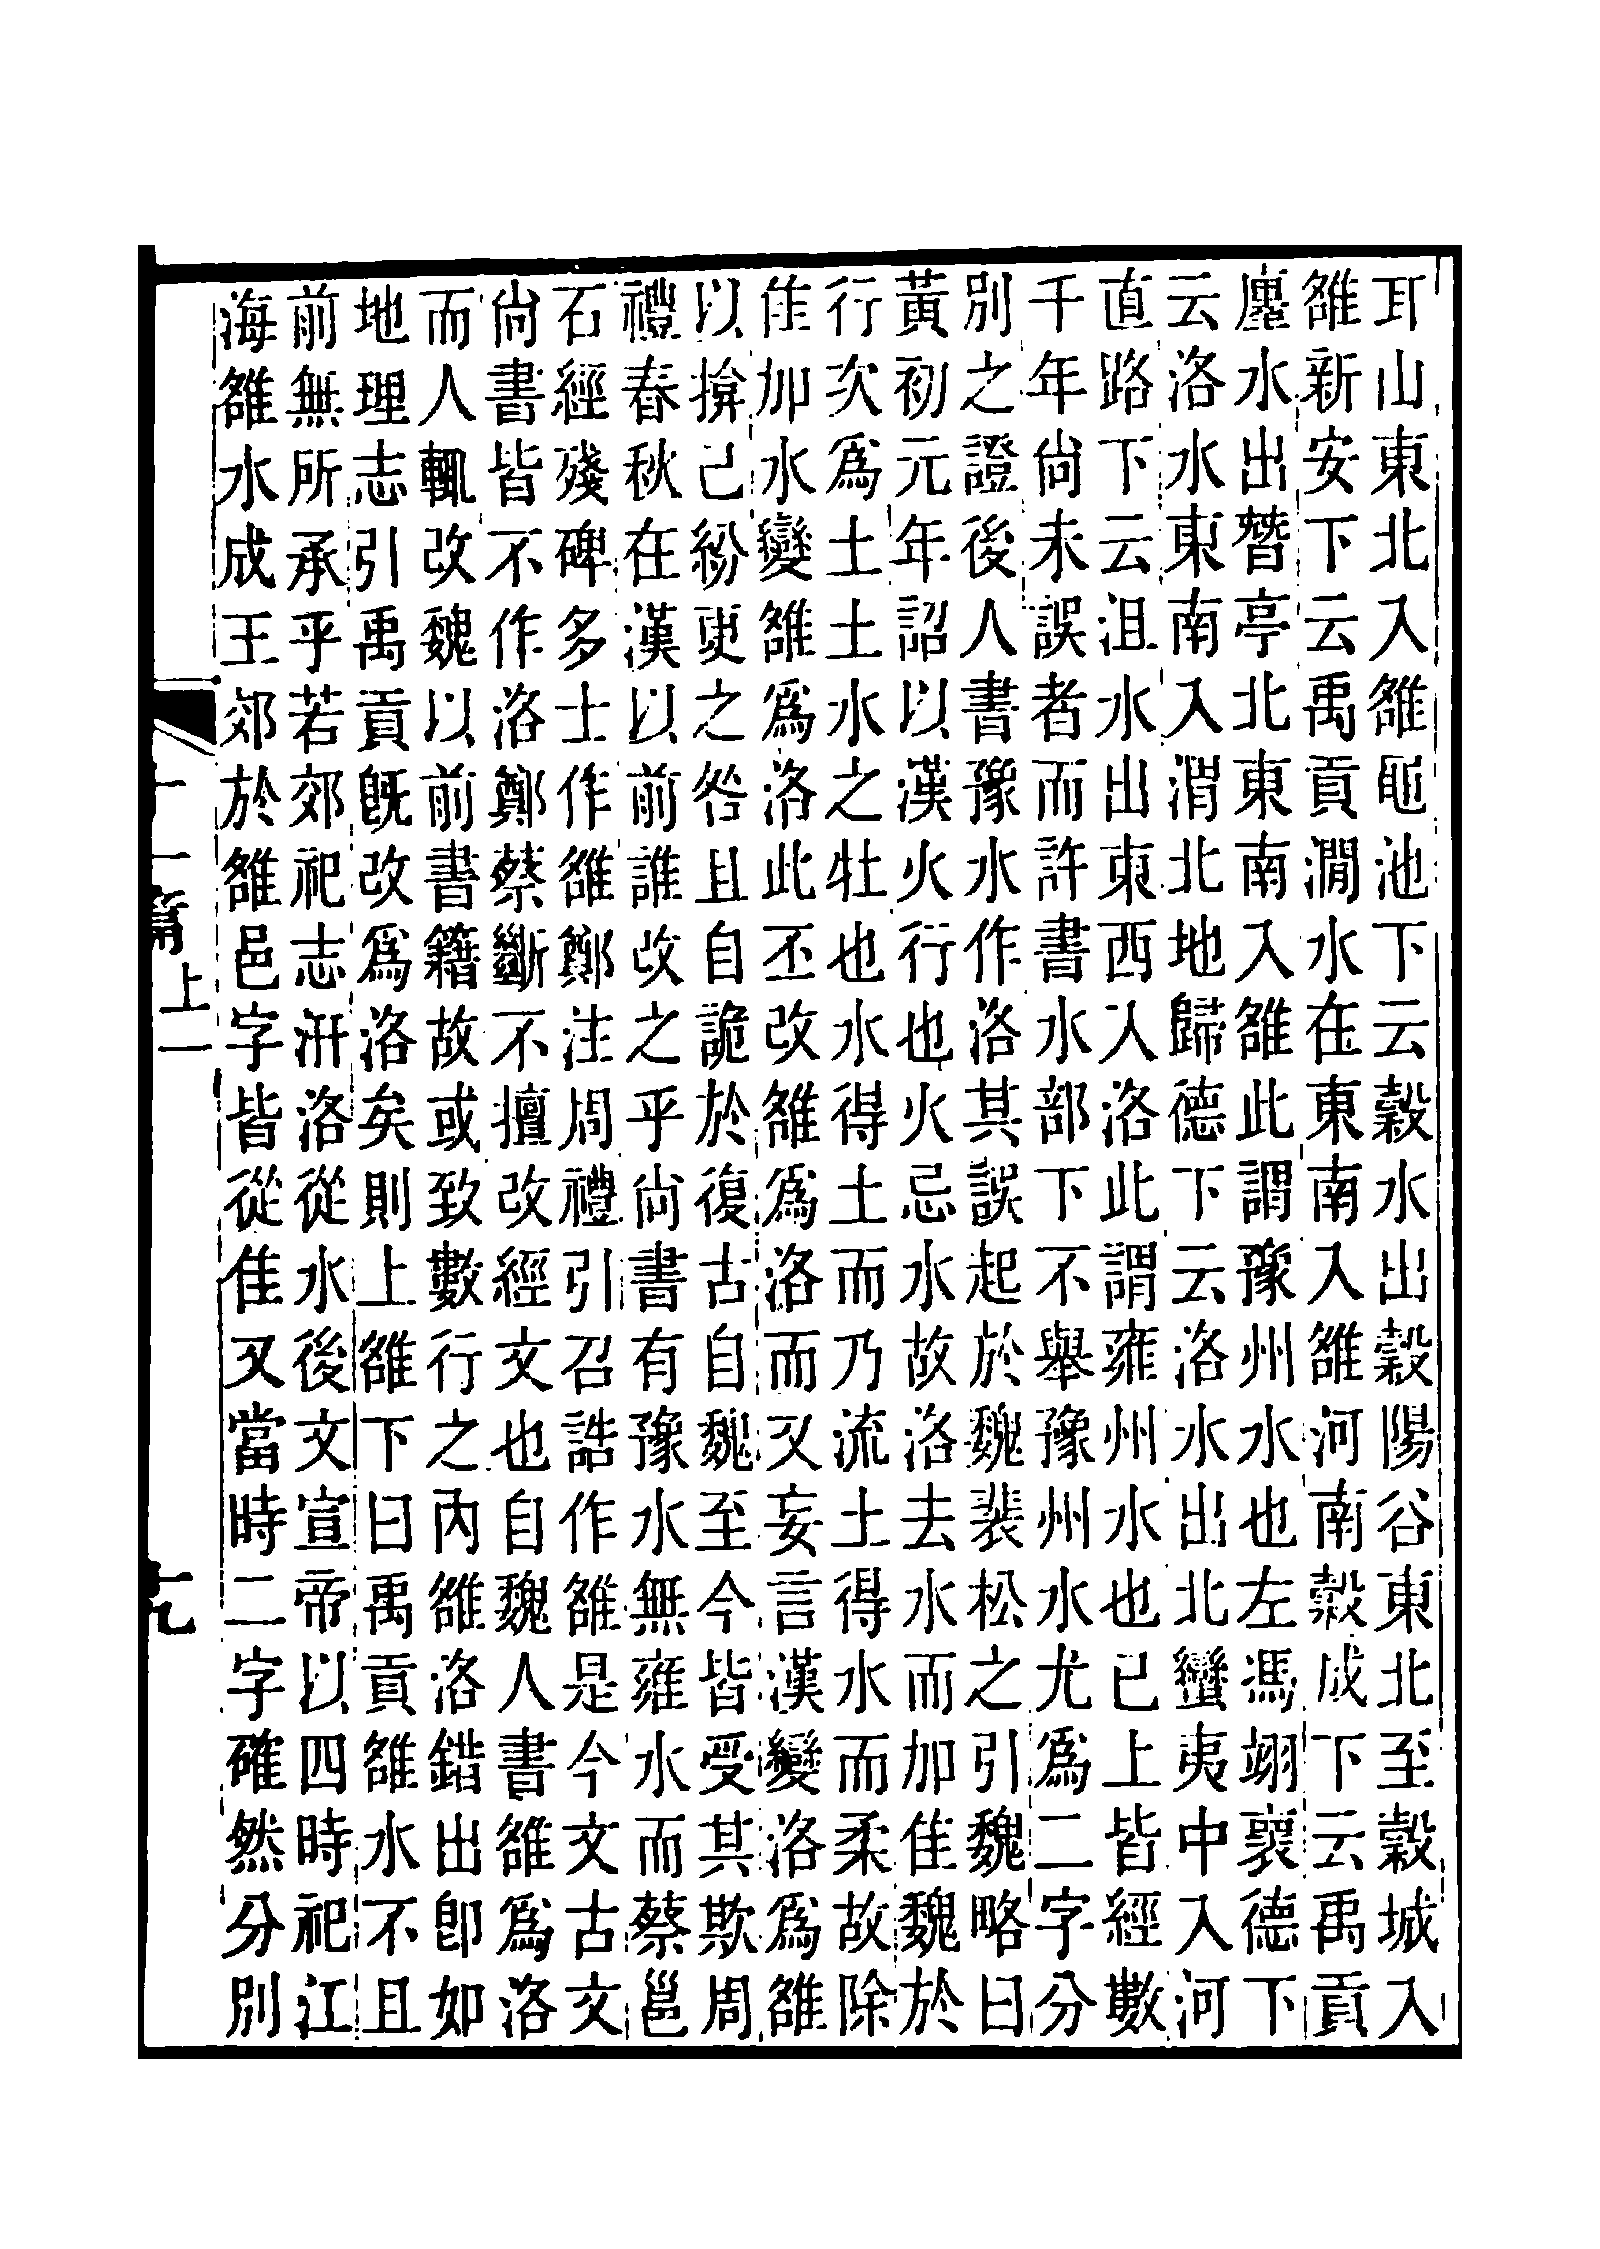 耳山東北入雒黽池下云穀水出穀陽谷東北至穀城入
雒新安下云禹貢澗水在東南入雒河南穀成下云禹貢
廛水出朁亭北東南入雒此謂豫州水也左馮翊襄德下
云洛水東南入渭北地歸德下云洛水出北蠻夷中入河
直路下云沮水出東西入洛此謂雍州水也已上皆經數
千年尙未誤者而許書水部下不舉豫州水尤爲二字分
別之證後人書豫水作洛其誤起於魏裴松之引魏略曰
黃初元年詔以漢火行也火忌水故洛去水而加隹魏於
行次爲土土水之牡也水得土而乃流土得水而柔故除
隹加水變雒爲洛此丕改雒爲洛而又妄言漢變洛爲雒
以揜己紛更之咎且自詭於復古自魏至今皆受其欺周
禮春秋在漢以前誰改之乎尙書有豫水無雍水而蔡邕
石經殘碑多士作雒鄭注周禮引召誥作雒是今文古文
尙書皆不作洛鄭蔡斷不擅改經文也自魏人書雒爲洛
而人輒改魏以前書籍故或致數行之內雒洛錯出卽如
地理志引禹貢旣改爲洛矣則上雒下曰禹貢雒水不且
前無所承乎若郊祀志汧洛從水後文宣帝以四時祀江
海雒水成王郊於雒邑字皆從隹又當時二字確然分別
十一篇上一